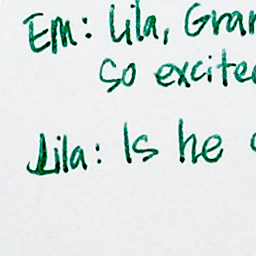 Em: Lila, Gran
So excited
Lila: Is he